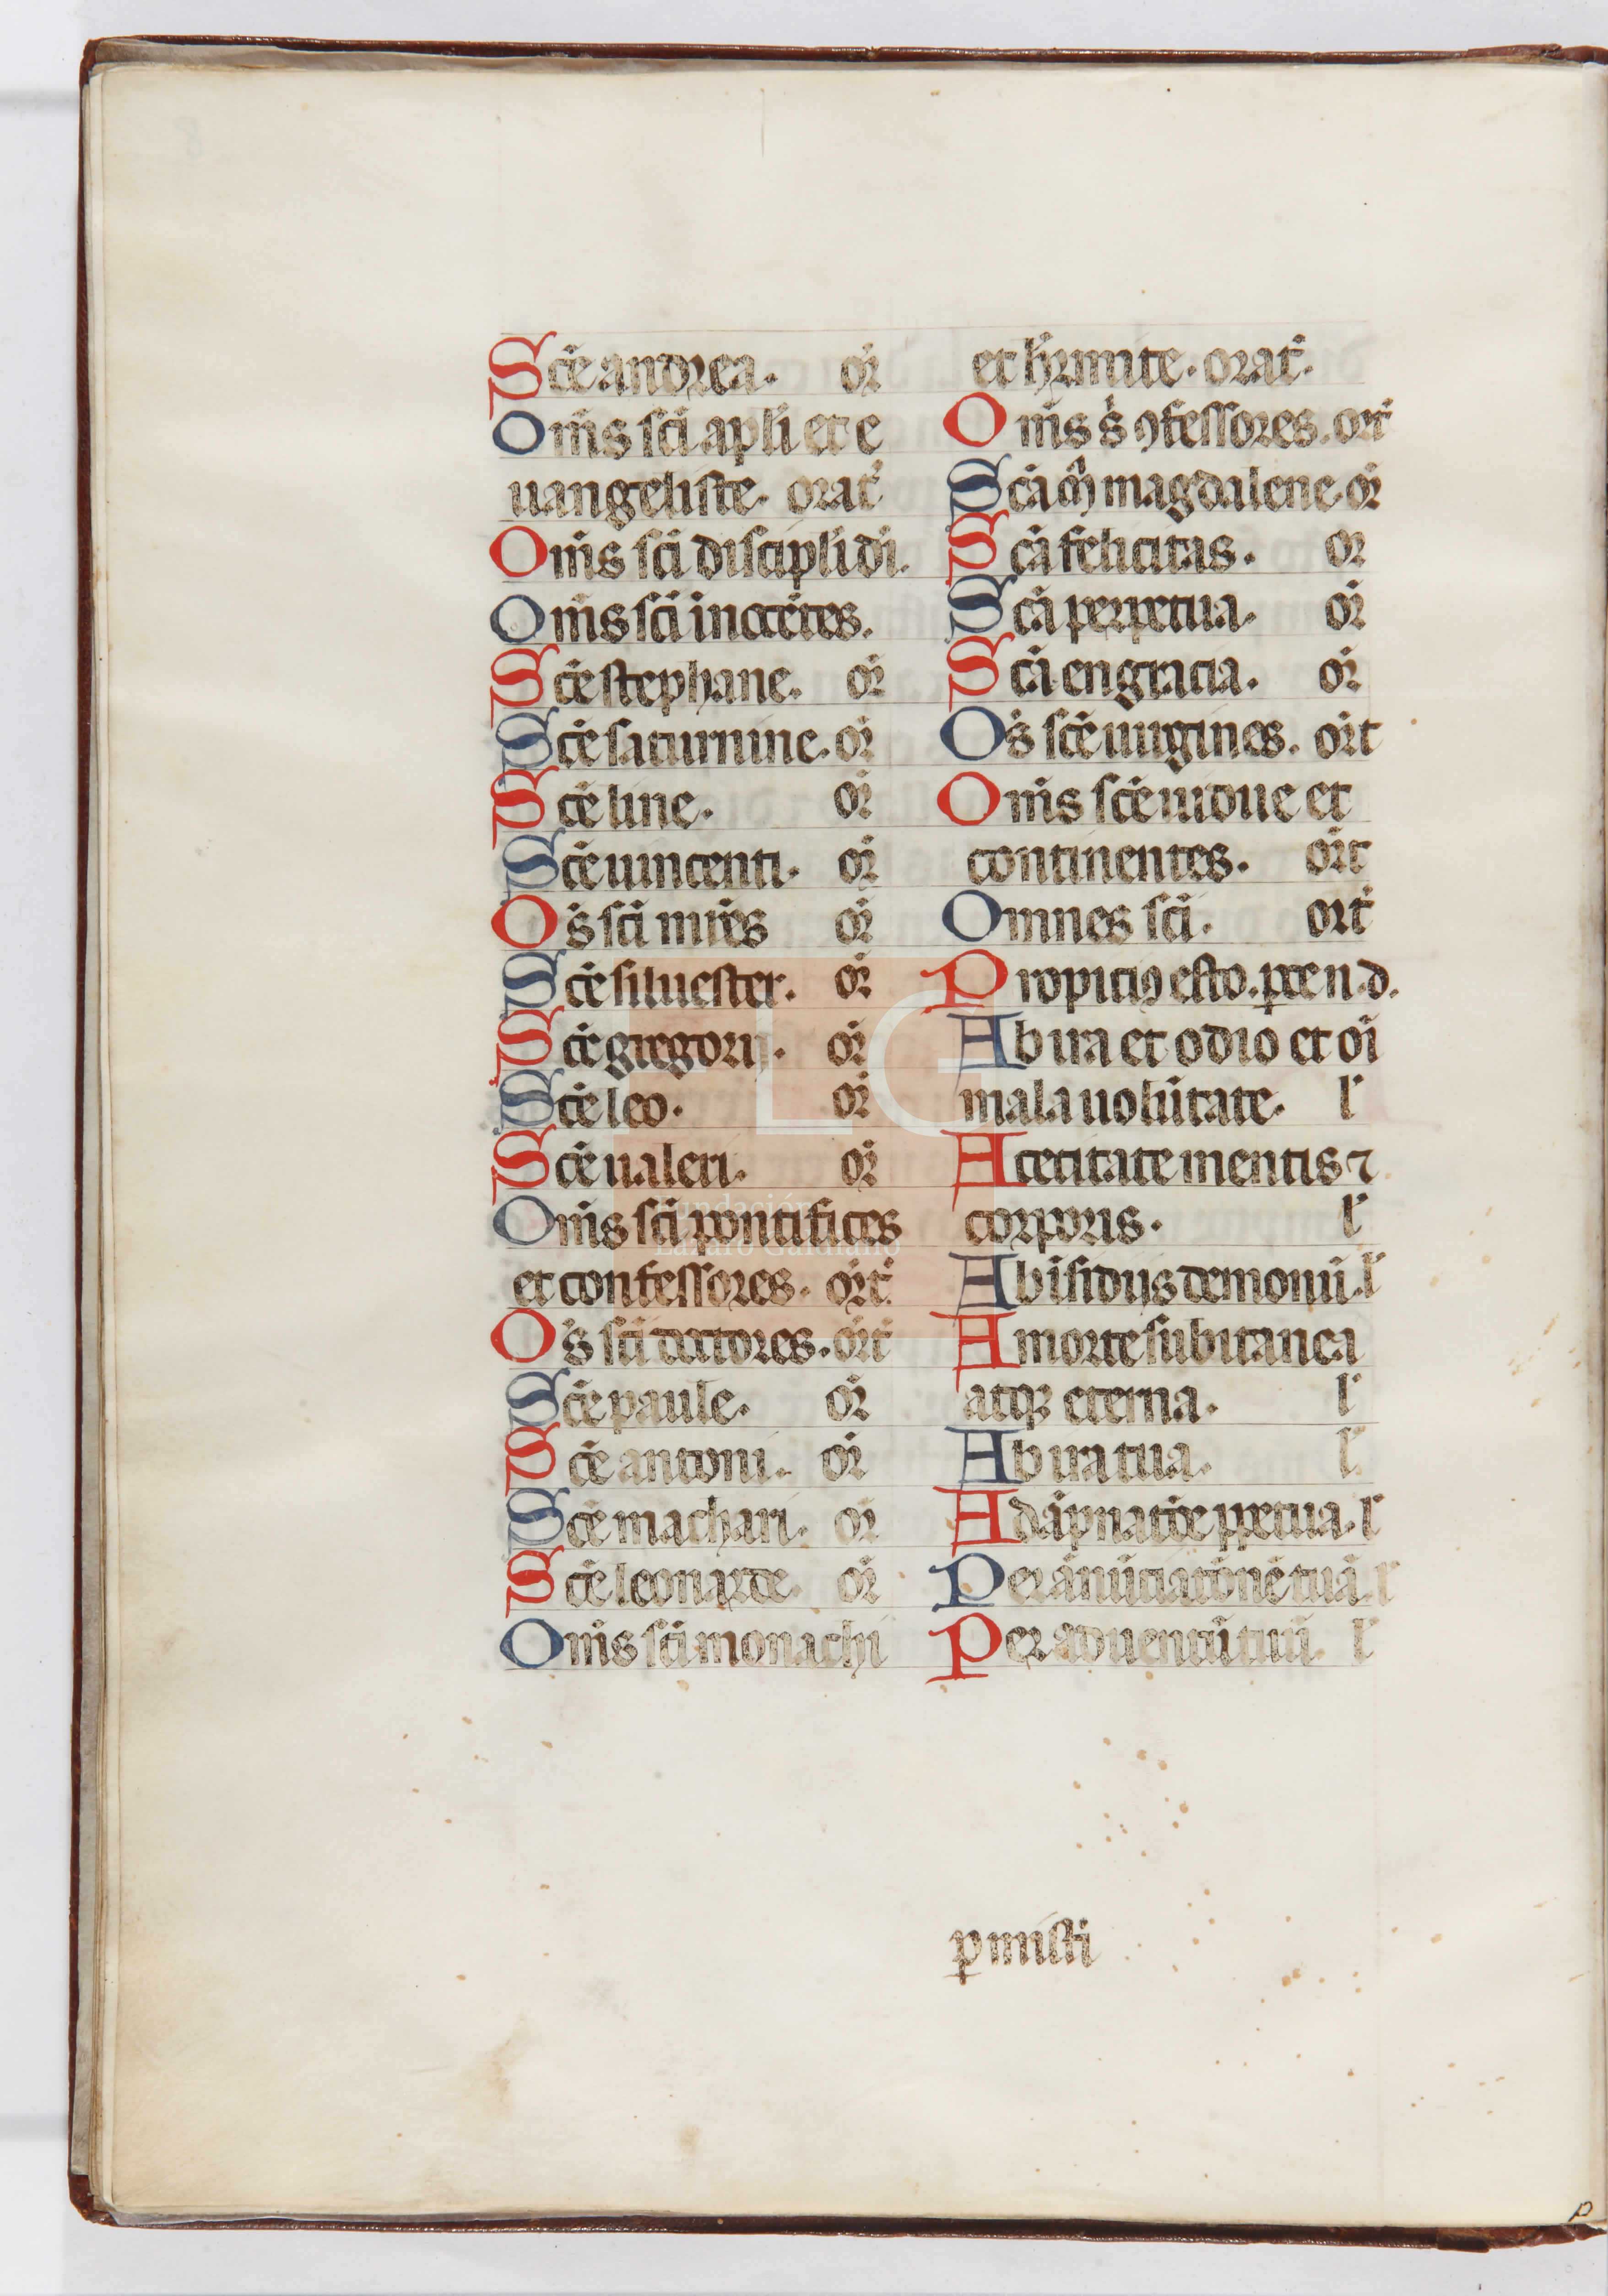 Sce andrea. or
Oms sci apli et e
uangeliste. orat
Oms sci discipli di.
Oms sci inocetes.
Sce stephane. or
Sce saturnine. or
Sce line. or
Sce uincenti. or
Os sci mres or
Sce siluester. or
Sce gregori. or
Sce leo. or
Sce ualeri. or
Oms sci pontifices
et confessores. ort
Os sci doctores. ort
Sce paule. or
Sce antoni. or
Sce machari. or
Sce leonarde. or
Oms sci monachi
et hrmite. orat.
Oms s ꝯfessores. ort
Sca m magdalene. or
Sca felicitas. or
Sca perpetua. or
Sca engracia. or
Os sce uirgines. ort
Oms sce uidue et
continentes. ort
Omnes sci. ort
Propiciꝯ esto. pce n. d.
Ab ira et odio et oi
mala uolutate. l
A cecitate mentis ⁊
corporis. l
Ab isidiis demonii. l
A morte subitanea
atqꝫ eterna. l
Ab ira tua. l
A dapnatoe ppetua. l
Per anuciatone tua. l
Per aduentu tuu. l
ꝑ misti
Fundación
Lázaro Galdiano